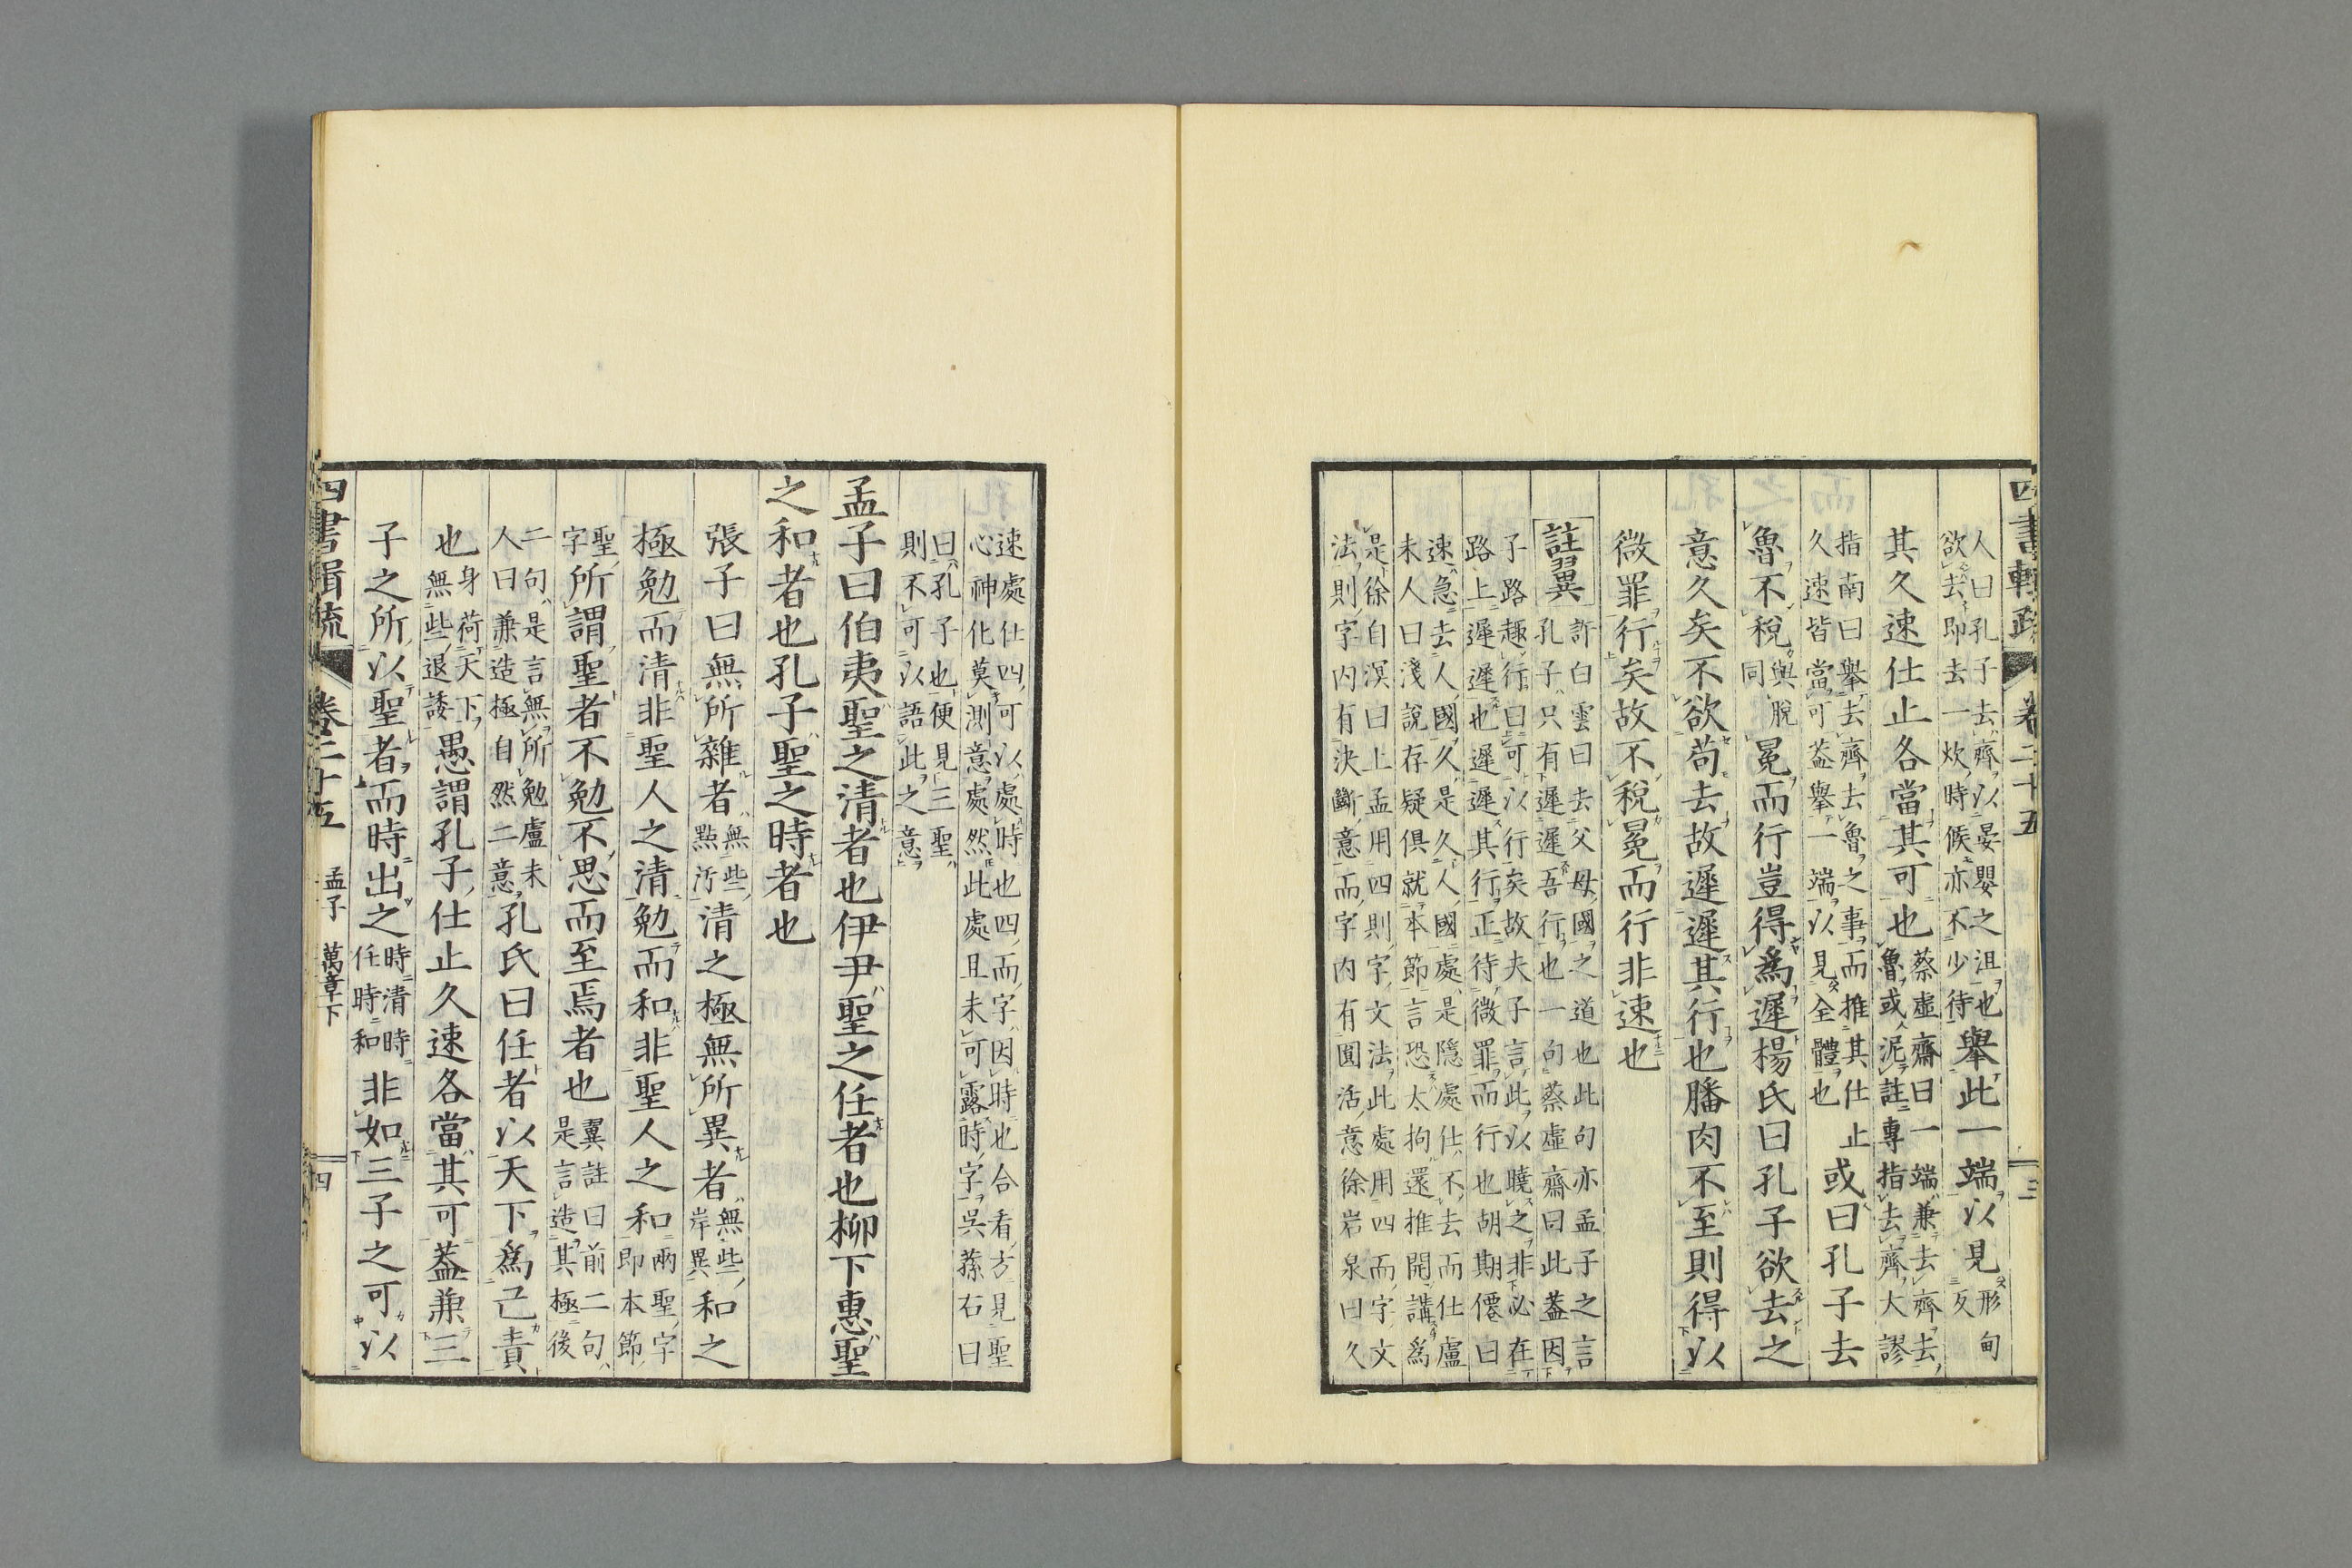 四書輯疏 卷二十五 三
人曰孔子去齊以晏嬰之沮也
欲去即去一炊時候亦不少待
舉此一端以見
形甸
反
其久速仕止各當其可也
蔡虛齋曰一端兼去齊去
魯或泥註專指去齊大謬
指南曰舉去齊去魯之事而推其仕止
久速皆當可蓋舉一端以見全體也
或曰孔子去
魯不稅
與脫
同
冕而行豈得為遲楊氏曰孔子欲去之
意久矣不欲苟去故遲遲其行也膰肉不至則得以
微罪行矣故不稅冕而行非速也
註翼
許白雲曰去父母國之道也此句亦孟子之言
孔子只有遲遲吾行也一句蔡虛齋曰此蓋因
子路趣行曰可以行矣故夫子言此以曉之非必在
路上遲遲也遲遲其行正待微罪而行也胡期僊曰
速急去人國久是久人國處是隱處仕不去而仕盧
未人曰淺說存疑俱就本節言恐太拘還推開講為
是徐自溟曰上孟用四則字文法此處用四而字文
法則字內有決斷意而字內有圓活意徐岩泉曰久
速處仕四可以處時也四而字因時也合看方見聖
心神化莫測意處然此處且未可露時字吳蓀右曰
曰孔子也便見三聖
則不可以語此之意
孟子曰伯夷聖之清者也伊尹聖之任者也柳下惠聖
之和者也孔子聖之時者也
張子曰無所雜者
無些
點汚
清之極無所異者
無些
岸異
和之
極勉而清非聖人之清勉而和非聖人之和
兩聖字
即本節
聖
字
所謂聖者不勉不思而至焉者也
翼註曰前二句
是言造其極後
二句是言無所勉盧未
人曰兼造極自然二意
孔氏曰任者以天下為己責
也
身荷天下
無些退諉
愚謂孔子仕止久速各當其可蓋兼三
子之所以聖者而時出之
時清時
任時和
非如三子之可以
四書輯疏 卷二十五 孟子 萬章下 四